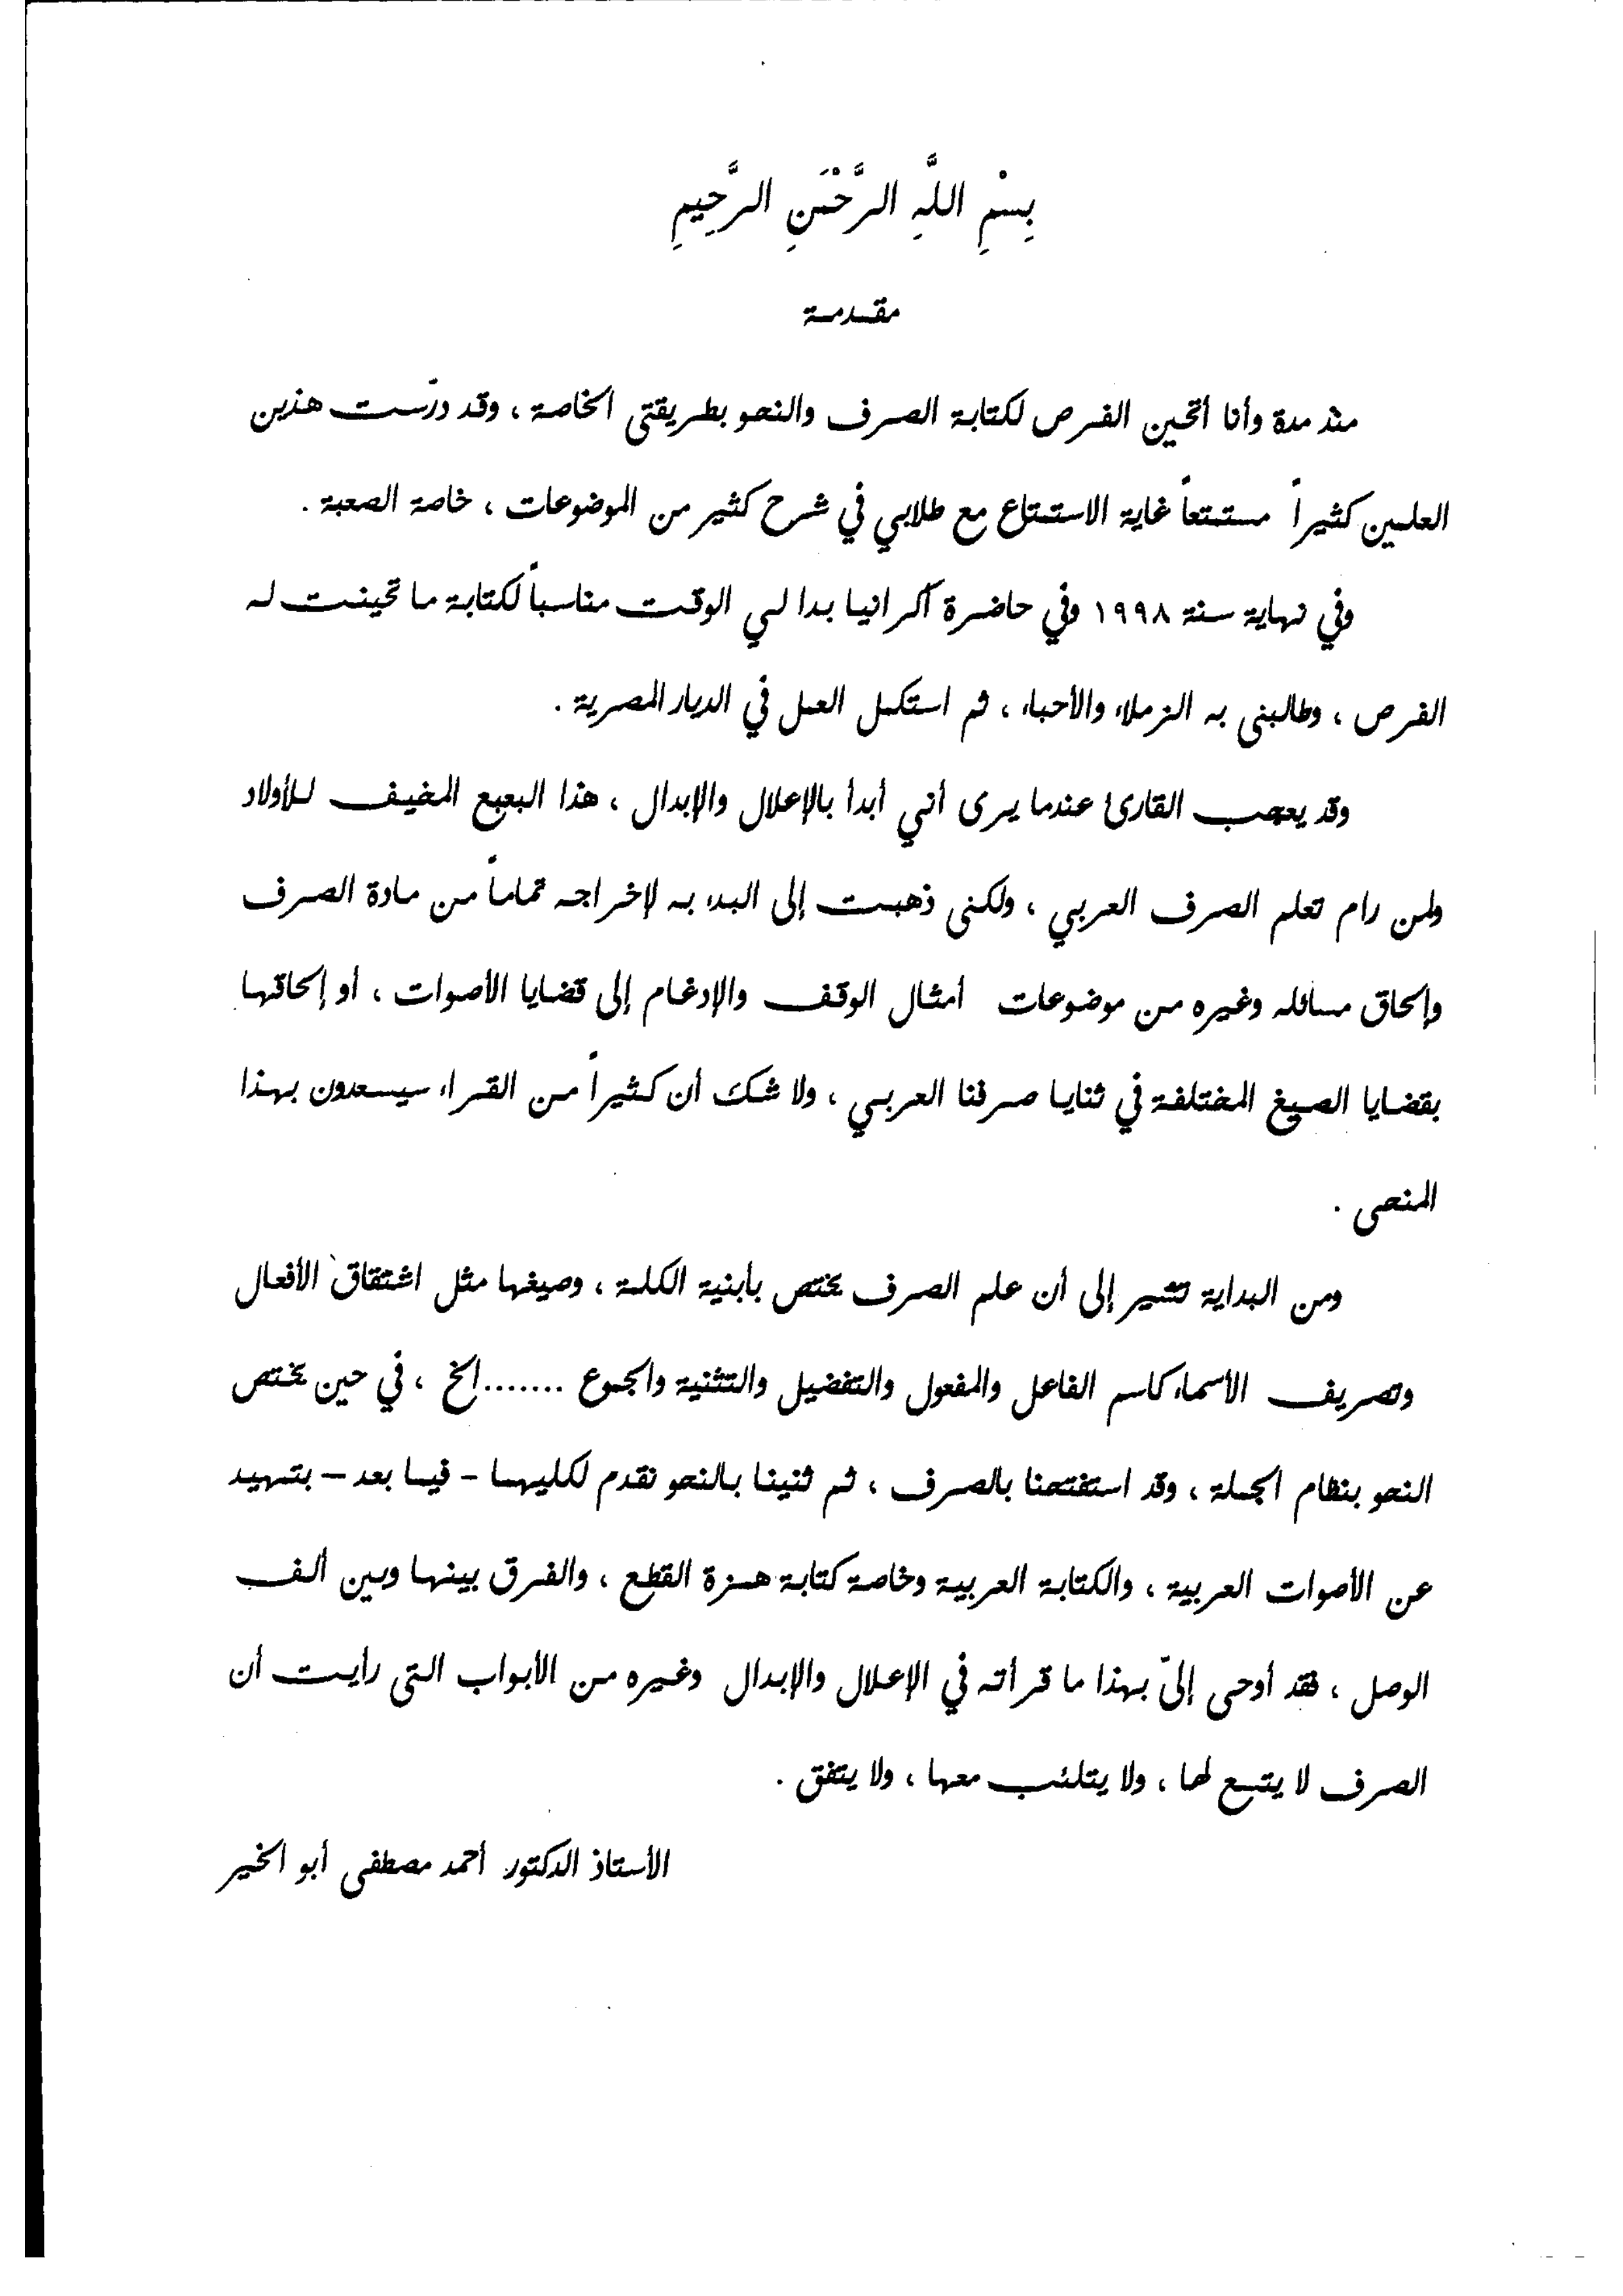 بِسْمِ اللَّهِ الرَّحْمَنِ الرَّحِيمِ
مقدمة
منذ مدة وأنا أتحين الفرص لكتابة الصرف والنحو بطريقتى الخاصة ، وقد درّست هذين
العلمين كثيراً مستمتعاً غاية الاستمتاع مع طلابي في شرح كثير من الموضوعات ، خاصة الصعبة .
وفي نهاية سنة ١٩٩٨ وفي حاضرة أكرانيا بدا لي الوقت مناسباً لكتابة ما تحينت له
الفرص ، وطالبنى به الزملاء والأحباء ، ثم استكمل العمل في الديار المصرية .
وقد يعجب القارئ عندما يرى أني أبدأ بالإعلال والإبدال ، هذا البعبع المخيف للأولاد
ولمن رام تعلم الصرف العربي ، ولكنى ذهبت إلى البدء به لإخراجه تماماً من مادة الصرف
وإلحاق مسائله وغيره من موضوعات أمثال الوقف والإدغام إلى قضايا الأصوات ، أو إلحاقها
بقضايا الصيغ المختلفة في ثنايا صرفنا العربي ، ولا شك أن كثيراً من القراء سيسعدون بهذا
المنحى .
ومن البداية تشير إلى أن علم الصرف يختص بأبنية الكلمة ، وصيغها مثل اشتقاق الأفعال
وتصريف الأسماء كاسم الفاعل والمفعول والتفضيل والتثنية والجموع .......إلخ ، في حين يختص
النحو بنظام الجملة ، وقد استفتحنا بالصرف ، ثم ثنينا بالنحو نقدم لكليهما - فيما بعد – بتمهيد
عن الأصوات العربية ، والكتابة العربية وخاصة كتابة همزة القطع ، والفرق بينها وبين ألف
الوصل ، فقد أوحى إليّ بهذا ما قرأته في الإعلال والإبدال وغيره من الأبواب التى رأيت أن
الصرف لا يتسع لها ، ولا يتلئب معها ، ولا يتفق .
الأستاذ الدكتور أحمد مصطفى أبو الخير